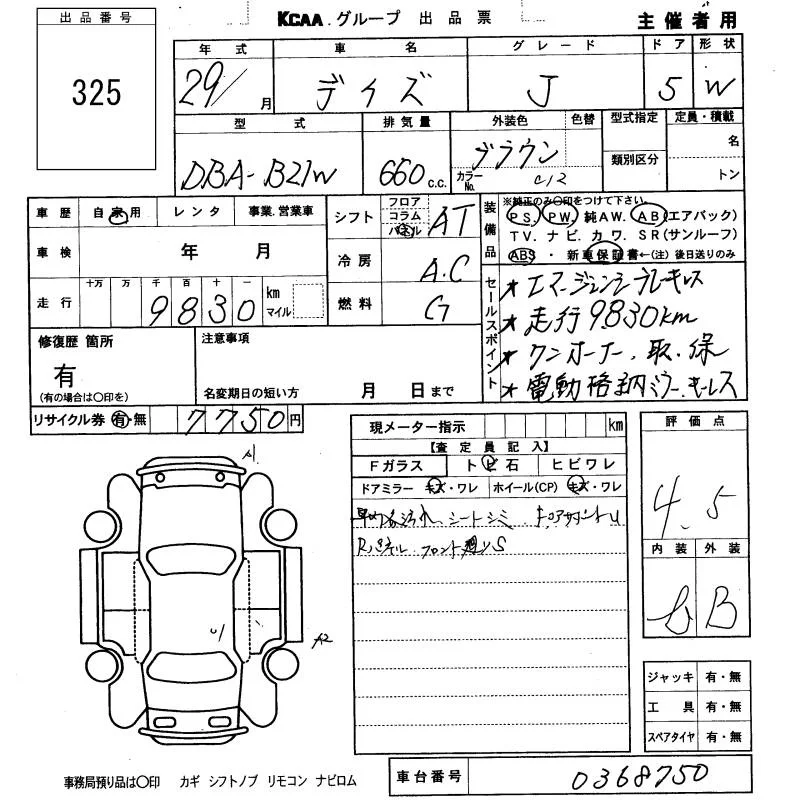 出品番号
325
KCAA.グループ 出品票
主催者用
年式 車名 グレード ドア 形状
29/月 デイズ J 5 W
型式 排気量 外装色 色替 型式指定 定員・積載
DBA-B21W 660 c.c. ブラウン 名
カラーNo. C12 類別区分 トン
車歴 自家用 レンタ 事業.営業車
シフト フロア コラム パネル AT
装備品
※純正のみ○印をつけて下さい。
PS. PW. 純AW. AB(エアバック)
TV. ナビ. カワ. SR(サンルーフ)
ABS・新車保証書←(注)後日送りのみ
車検 年 月
冷房 A.C
走行 十万 万 千 百 十 一 km マイル
9830
燃料 G
セールスポイント
★エマージェンシーブレーキレス
★走行9830km
★ワンオーナー.取.保
★電動格納ミラー.キーレス
修復歴 箇所
有
(有の場合は○印を)
注意事項
名変期日の短い方 月 日まで
リサイクル券 有・無 7750円
現メーター指示 km
【査定員記入】
Fガラス トビ石 ヒビワレ
ドアミラー キズ・ワレ ホイール(CP) キズ・ワレ
シートシミ.
Rパネル.フロント廻りS
評価点
4.5
内装 外装
B
A1
A2
ジャッキ 有・無
工具 有・無
スペアタイヤ 有・無
事務局預り品は○印 カギ シフトノブ リモコン ナビロム
車台番号 0368750